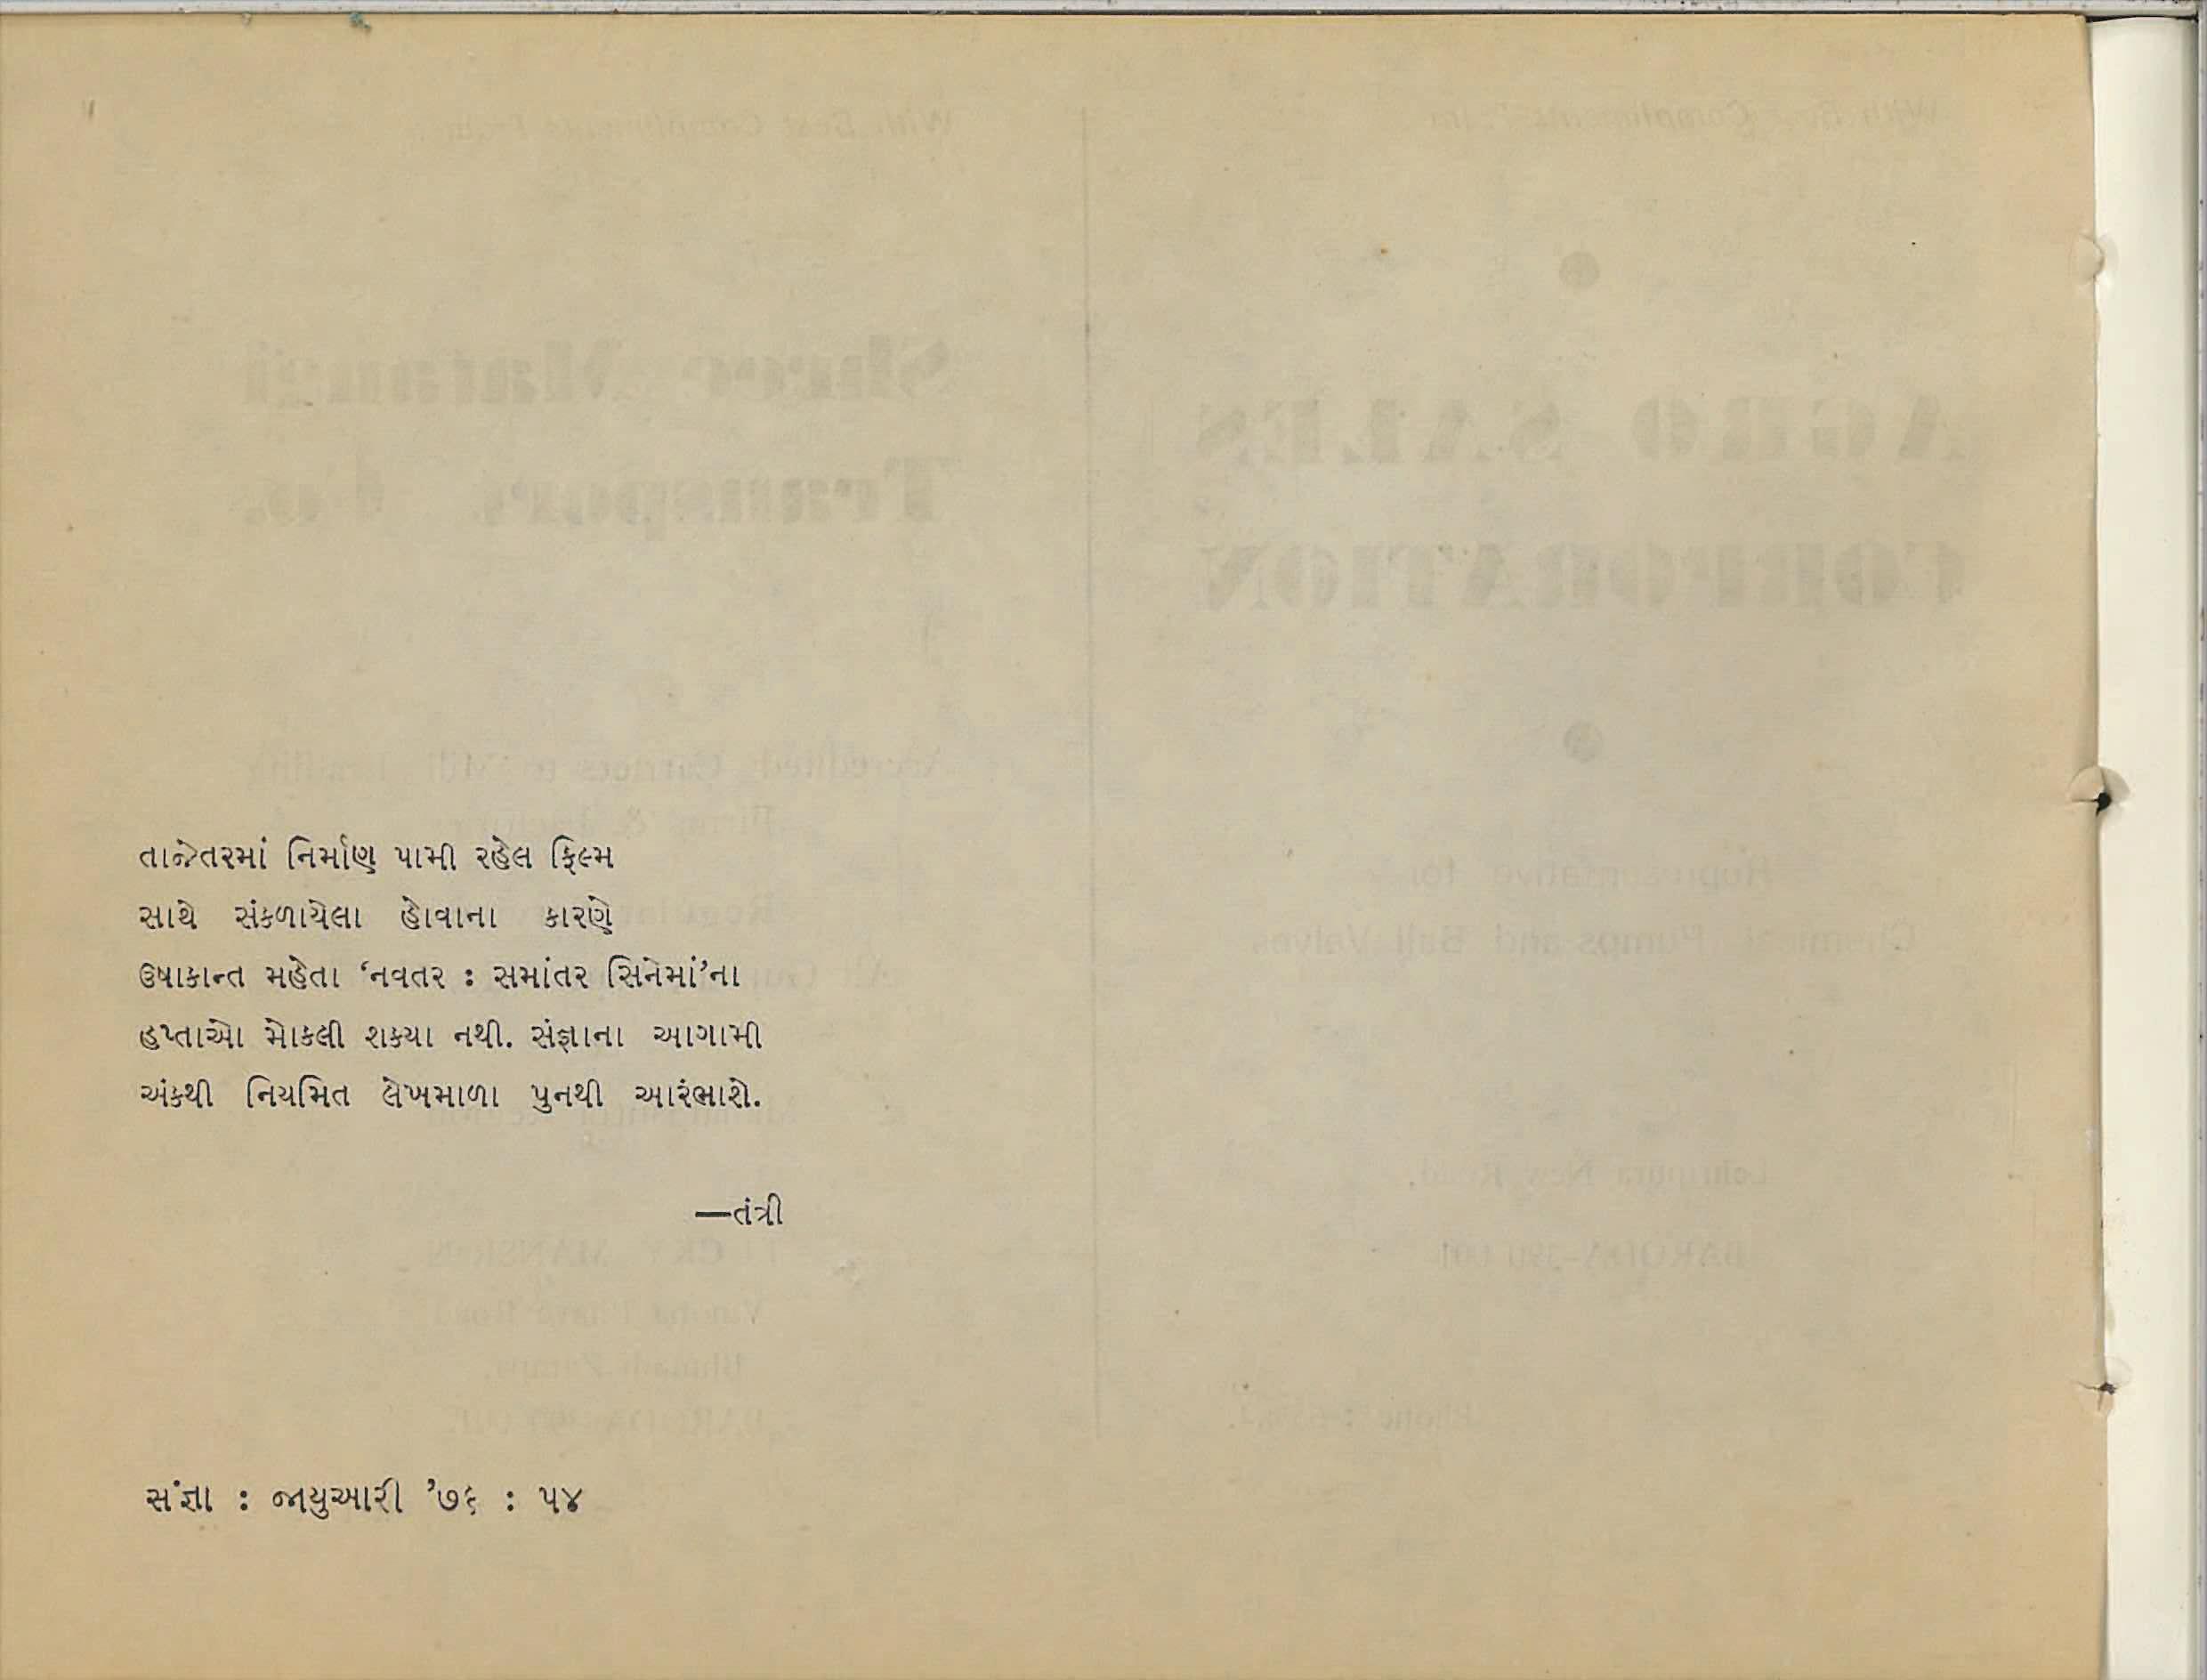 તાજેતરમાં નિર્માણ પામી રહેલ ફિલ્મ
સાથે સંકળાયેલા હોવાના કારણે
ઉષાકાન્ત મહેતા ‘નવતર : સમાંતર સિનેમાં’ના
હપ્તાઓ મોકલી શક્યા નથી. સંજ્ઞાના આગામી
અંકથી નિયમિત લેખમાળા પુનથી આરંભાશે.
—તંત્રી
સંજ્ઞા : જાયુઆરી ’૭૬ : ૫૪